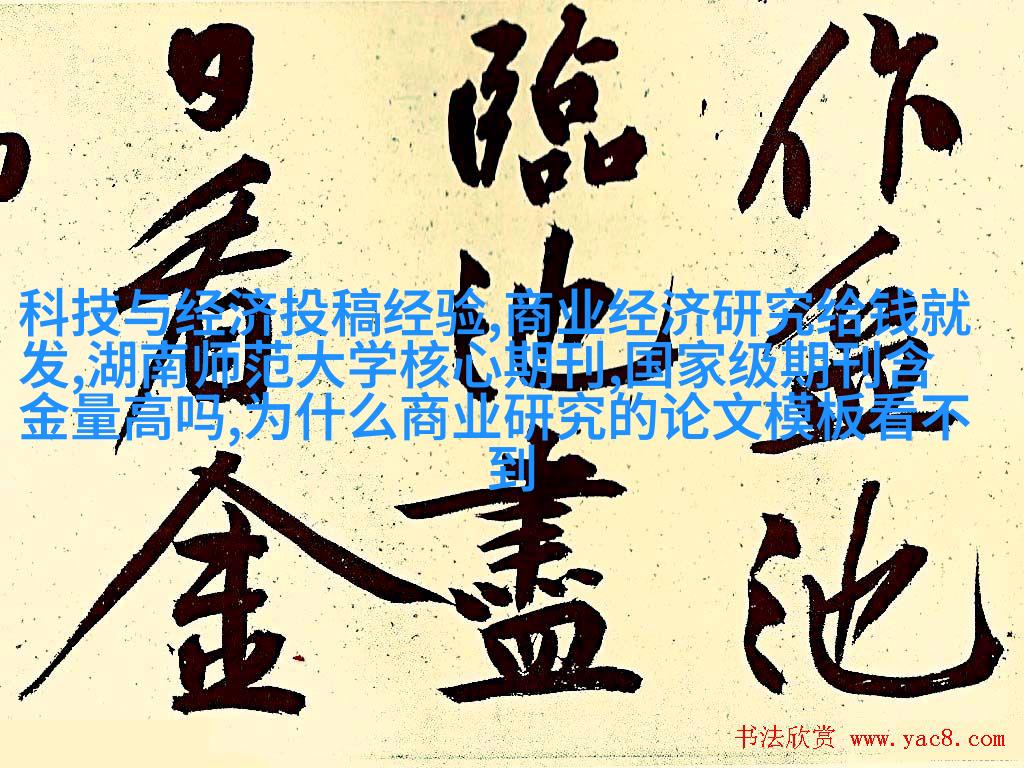 科技与经济投稿经验,商业经济研究给钱就
发,湖南师范大学核心期刊,国家级期刊含
金量高吗,为什么商业研究的论文模板看不
到
作
池
臨池
盡
日
金
书法欣赏 www.yac8.com